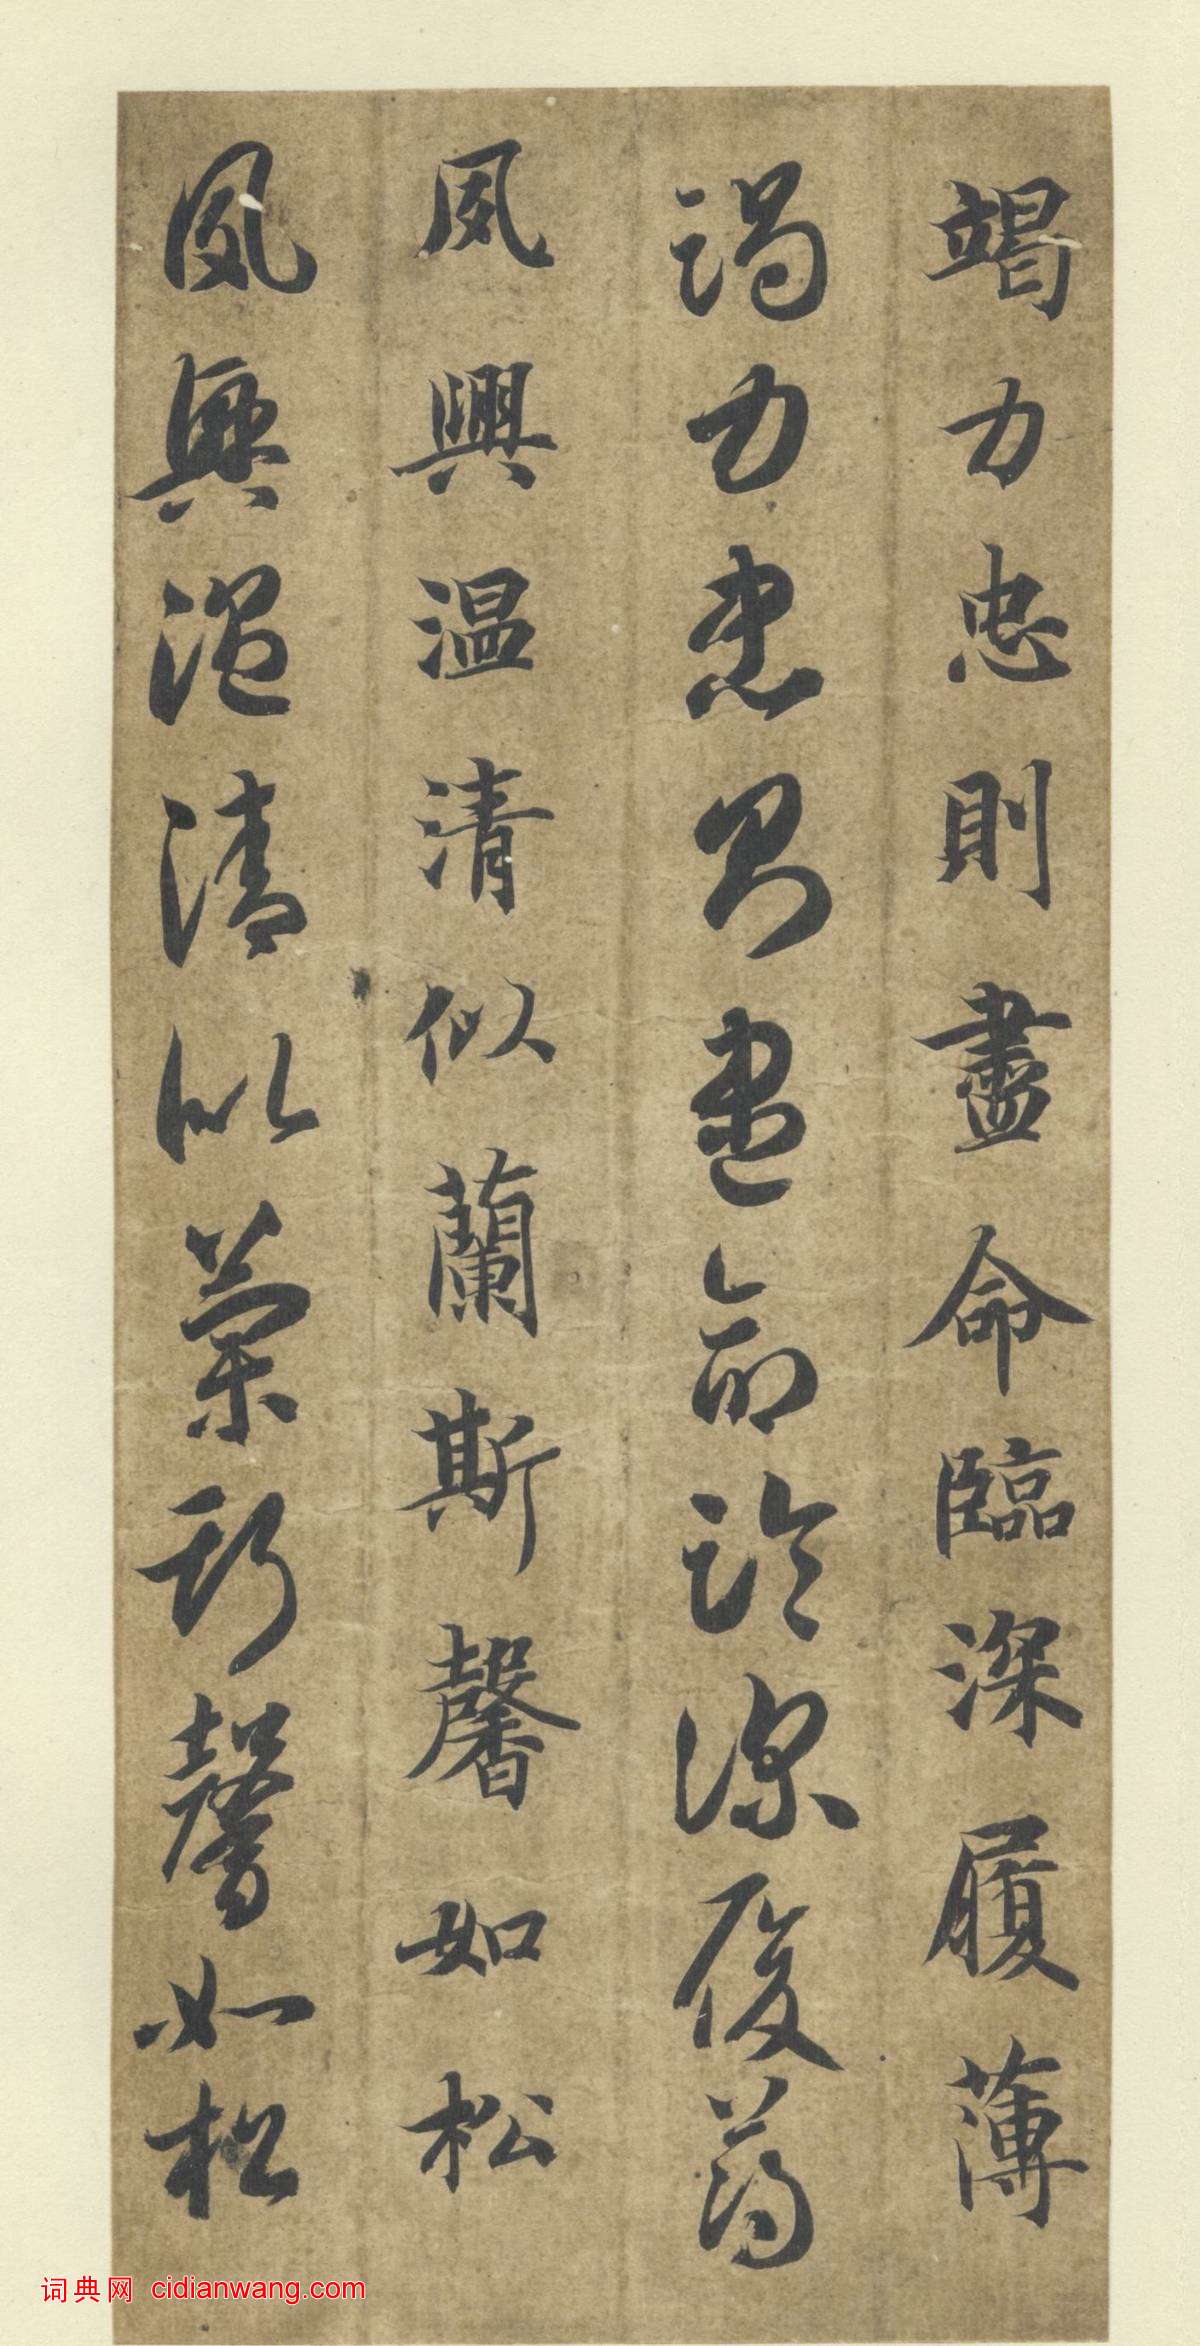 竭力忠則盡命臨深履薄
竭力忠則盡命臨深履薄
夙興溫清似蘭斯馨如松
夙興溫清似蘭斯馨如松
词典网 cidianwang.com